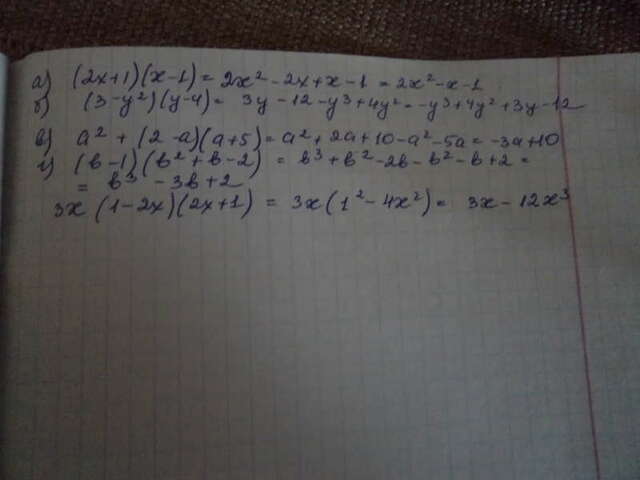 а) (2x+1)(x-1) = 2x² - 2x + x - 1 = 2x² - x - 1
б) (3-y²)(y-4) = 3y - 12 - y³ + 4y² = -y³ + 4y² + 3y - 12
в) a² + (2-a)(a+5) = a² + 2a + 10 - a² - 5a = -3a + 10
г) (b-1)(b²+b-2) = b³ + b² - 2b - b² - b + 2 =
= b³ - 3b + 2
3x (1-2x)(2x+1) = 3x (1² - 4x²) = 3x - 12x³